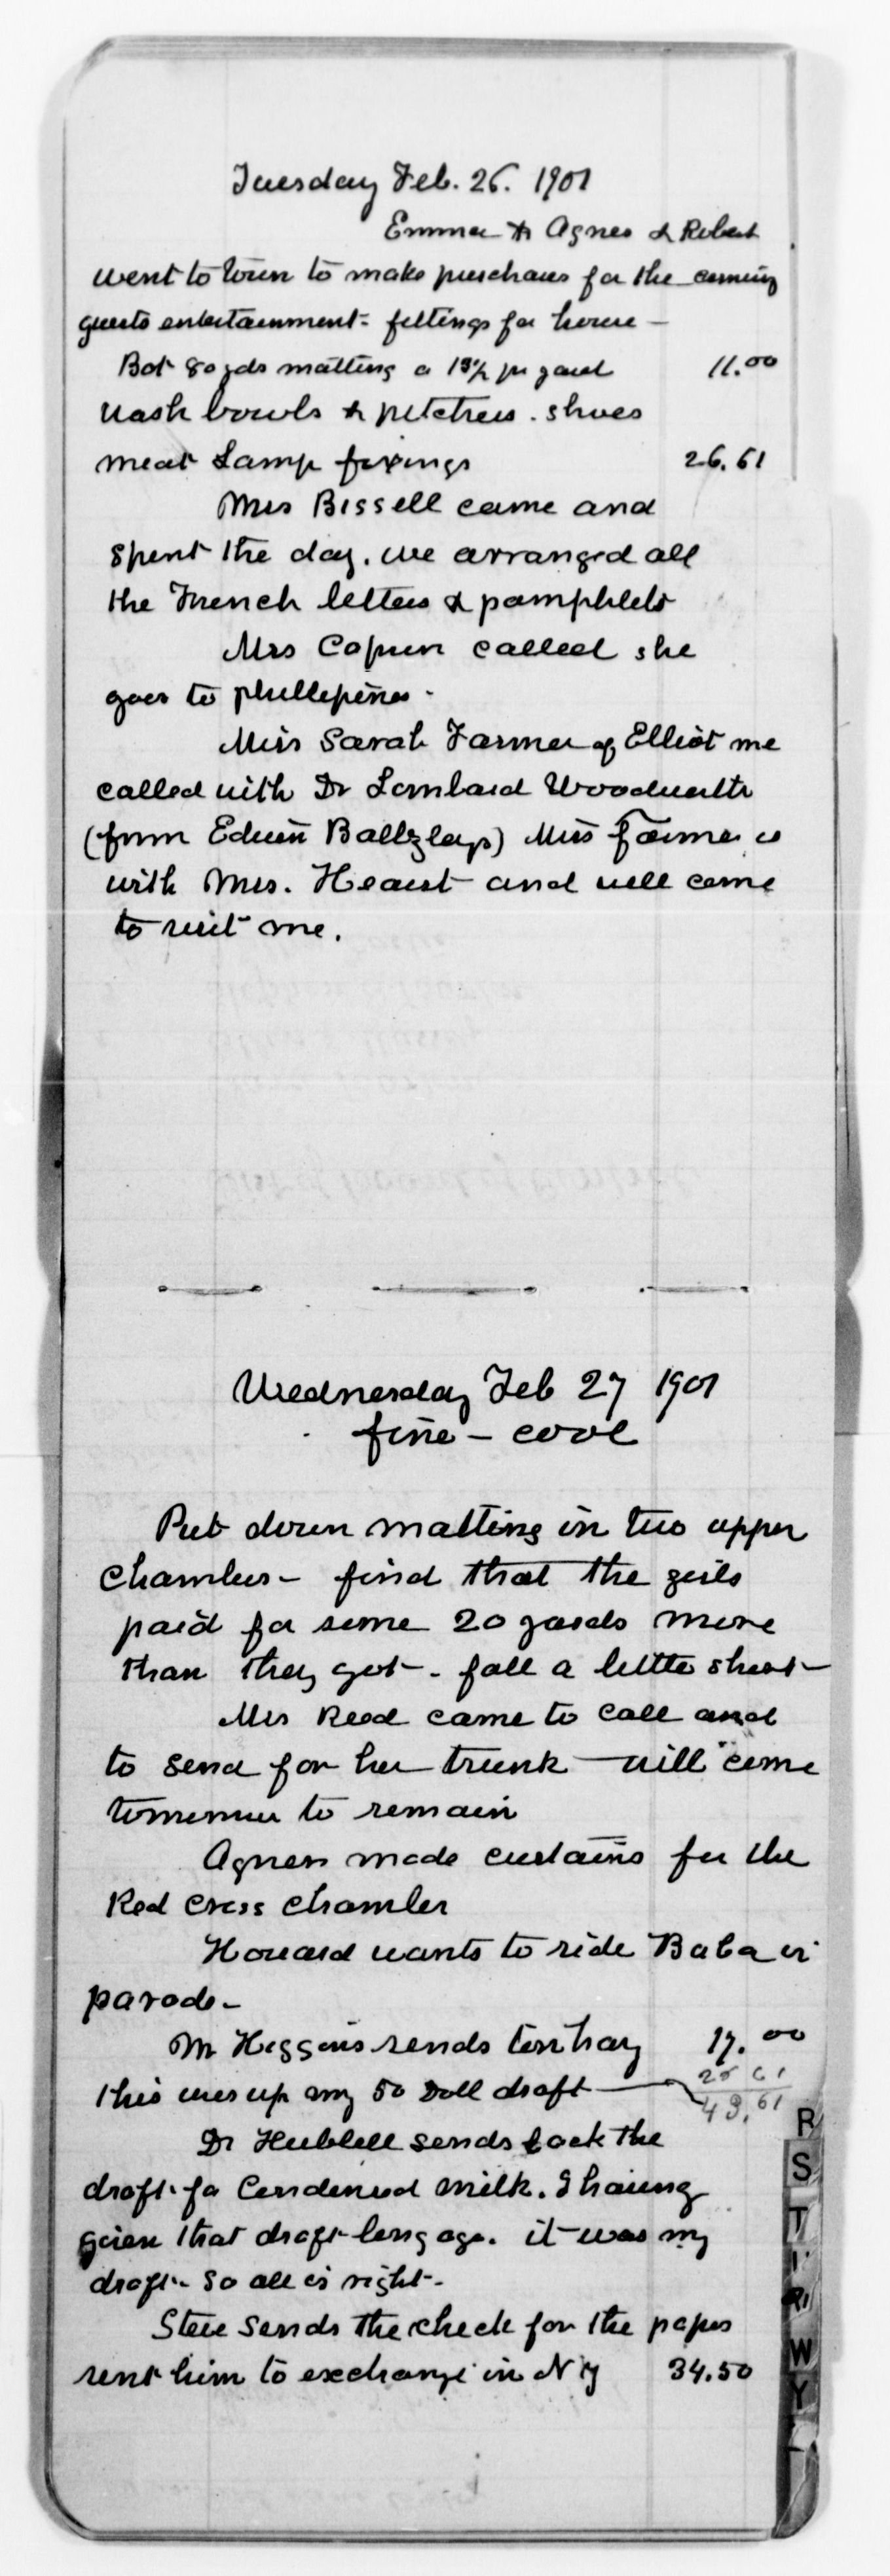 Tuesday Feb. 26. 1901
Emma & Agnes & Robert
went to town to make purchases for the coming
guests entertainment - fittings for house -
Bot 80 yds matting a 13½ pr yard 11.00
wash bowls & pitchers. shoes
meat Lamp fixings 26.61
Mrs Bissell came and
spent the day. we arranged all
the French letters & pamphlets
Mrs Capron called she
goes to phillepines -
Miss Sarah Farmer of Elliot me
called with Dr Lombard Woodworth
(from Edwin Baltzleys) Miss Farmer is
with Mrs. Hearst and will come
to visit me.
Wednesday Feb 27 1901
fine - cool
Put down matting in two upper
chambers - find that the girls
paid for some 20 yards more
than they got - fall a little short -
Mrs Reed came to call and
to send for her trunk - will come
tomorrow to remain
Agnes made curtains for the
Red Cross chamber
Howard wants to ride Baba in
parade -
Mr Higgins sends ton hay 17.00
this uses up my 50 Doll draft 26 61
43.61
Dr Hubbell sends back the
draft for Condensed milk. I having
given that draft long ago. it was my
draft - so all is right -
Steve sends the check for the paper
sent him to exchange in N Y 34.50
R
S
T
W
Y